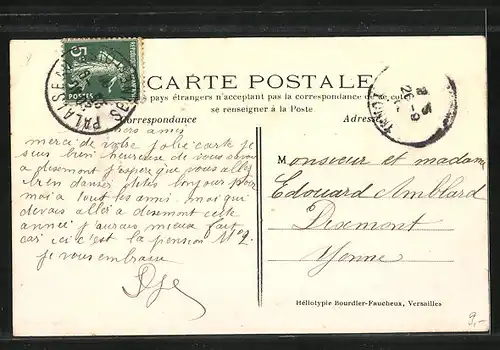 5c
POSTES
PALAISEAU
CARTE POSTALE
pays étrangers n'acceptant pas la correspondance de ce côté
se renseigner à la Poste.
Correspondance
Adresse
chers amis
merci de votre jolie carte je
suis bien heureuse de vous savoir
à dixmont j'espère que vous allez
bien danser toujours pour
moi à tout les amis. moi qui
devais aller a dixmont cette
année j'aurais mieux fait
car ici c'est la pension N°2.
je vous embrasse
Monsieur et madame
Edouard Amblard
Dixmont
Yonne
Héliotypie Bourdier-Faucheux, Versailles
9,-